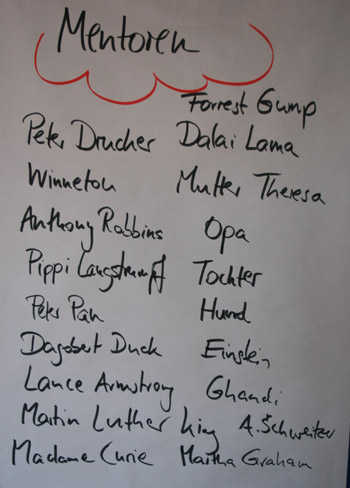 Mentoren
Forrest Gump
Peter Drucker Dalai Lama
Winnetou Mutter Theresa
Anthony Robbins Opa
Pippi Langstrumpf Tochter
Peter Pan Hund
Dagobert Duck Einstein
Lance Armstrong Ghandi
Martin Luther King A. Schweitzer
Madame Curie Martha Graham